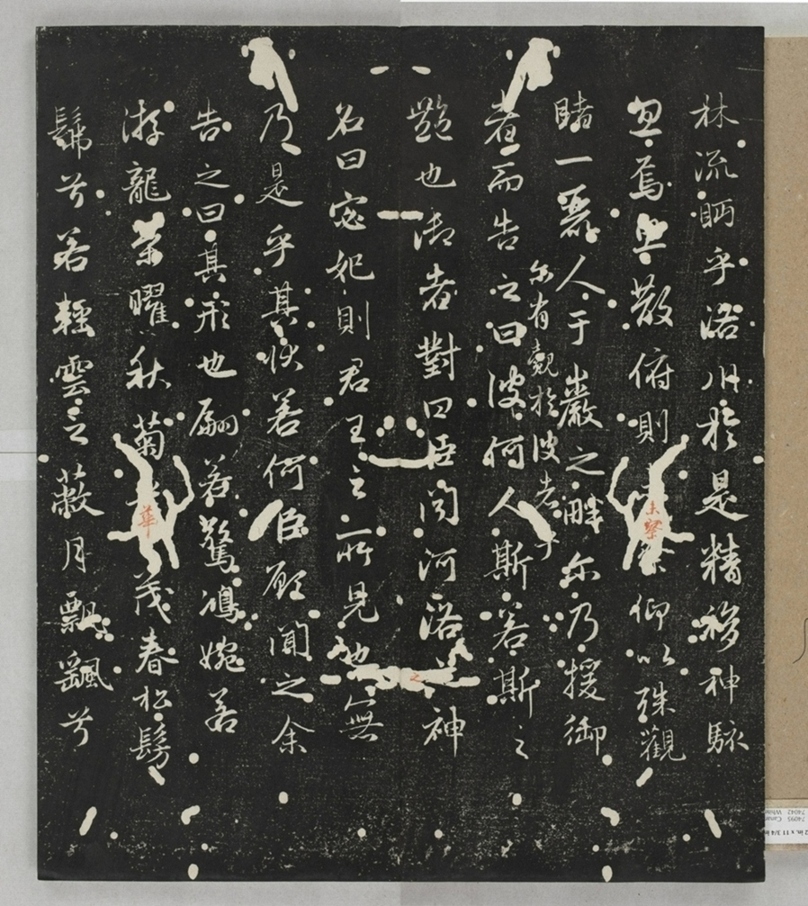 林流眄乎洛川於是精移神駭
忽焉思散俯則未察仰以殊觀
睹一麗人于巖之畔尔乃援御
尔有覿於彼者乎
者而告之曰彼何人斯若斯之
豔也御者對曰臣聞河洛之神
名曰宓妃則君王之所見也無
乃是乎其狀若何臣願聞之余
告之曰其形也翩若驚鴻婉若
游龍榮曜秋菊華茂春松髣
髴兮若輕雲之蔽月飄颻兮